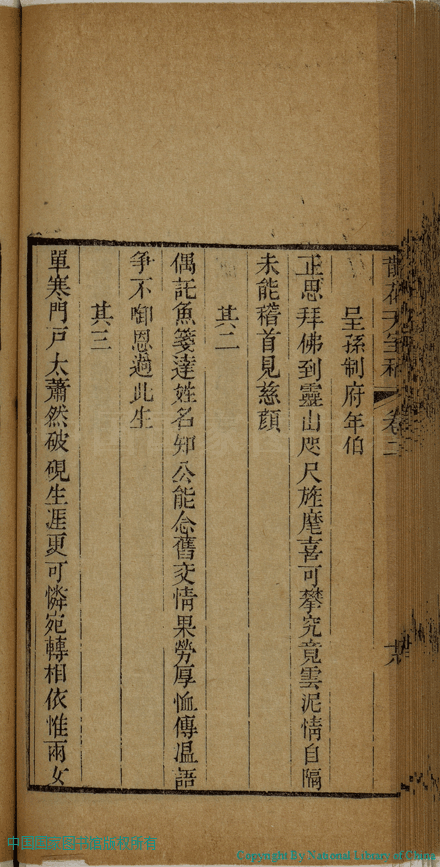 呈孫制府年伯
正思拜佛到靈山咫尺旌麾喜可攀究竟雲泥情自隔
未能稽首見慈顏
其二
偶託魚箋達姓名知公能念舊交情果勞厚恤傳溫語
爭不啣恩過此生
其三
單寒門戸太蕭然破硯生涯更可憐宛轉相依惟兩女
卷二
中国国家图书馆版权所有
Copyright By National Library of China